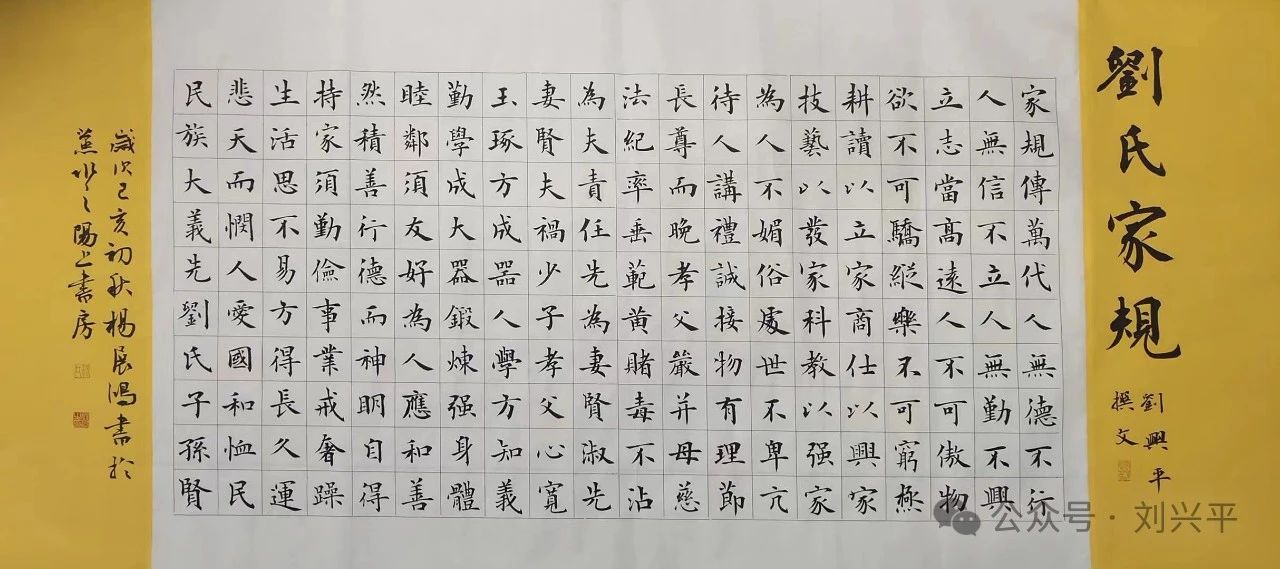 劉氏家規
劉興平
撰文
家規傳萬代人無德不行
人無信不立人無勤不興
立志當高遠人不可傲物
欲不可驕縱樂不可窮極
耕讀以立家商仕以興家
技藝以發家科教以强家
為人不媚俗處世不卑亢
待人講禮誠接物有理節
長尊而晚孝父嚴并母慈
法紀率垂範黄賭毒不沾
為夫責任先為妻賢淑先
妻賢夫禍少子孝父心寬
玉琢方成器人學方知義
勤學成大器鍛煉强身體
睦鄰須友好為人應和善
然積善行德而神明自得
持家須勤儉事業戒奢躁
生活思不易方得長久運
悲天而憫人愛國和恤民
民族大義先劉氏子孫賢
歲次己亥初秋楊展鴻書於
蕉之陽上書房
公众号·刘兴平